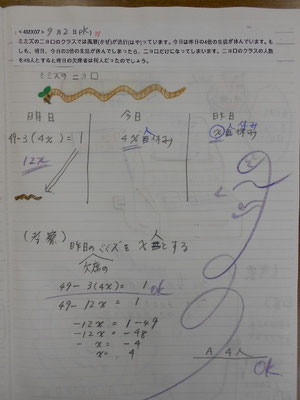 <4MX07> 9月2日
ミミズのニョロのクラスでは風邪(かぜ)が流行(はや)っています。今日は昨日の4倍の生徒が休んでいます。もし
も、明日、今日の3倍の生徒が休んでしまったら、ニョロ1匹だけになってしまいます。ニョロのクラスの人数
を49人とすると昨日の欠席者は何人だったのでしょう。
ミミズの ニョロ
明日 今日 昨日
49-3(4x)=1 4x人休み x人休み
12x
(考察) 昨日のミミズを x人とする
欠席の
49-3(4x) = 1 OK
49-12x = 1
-12x = 1-49
-12x = -48
- x = -4
x = 4
A 4人
OK